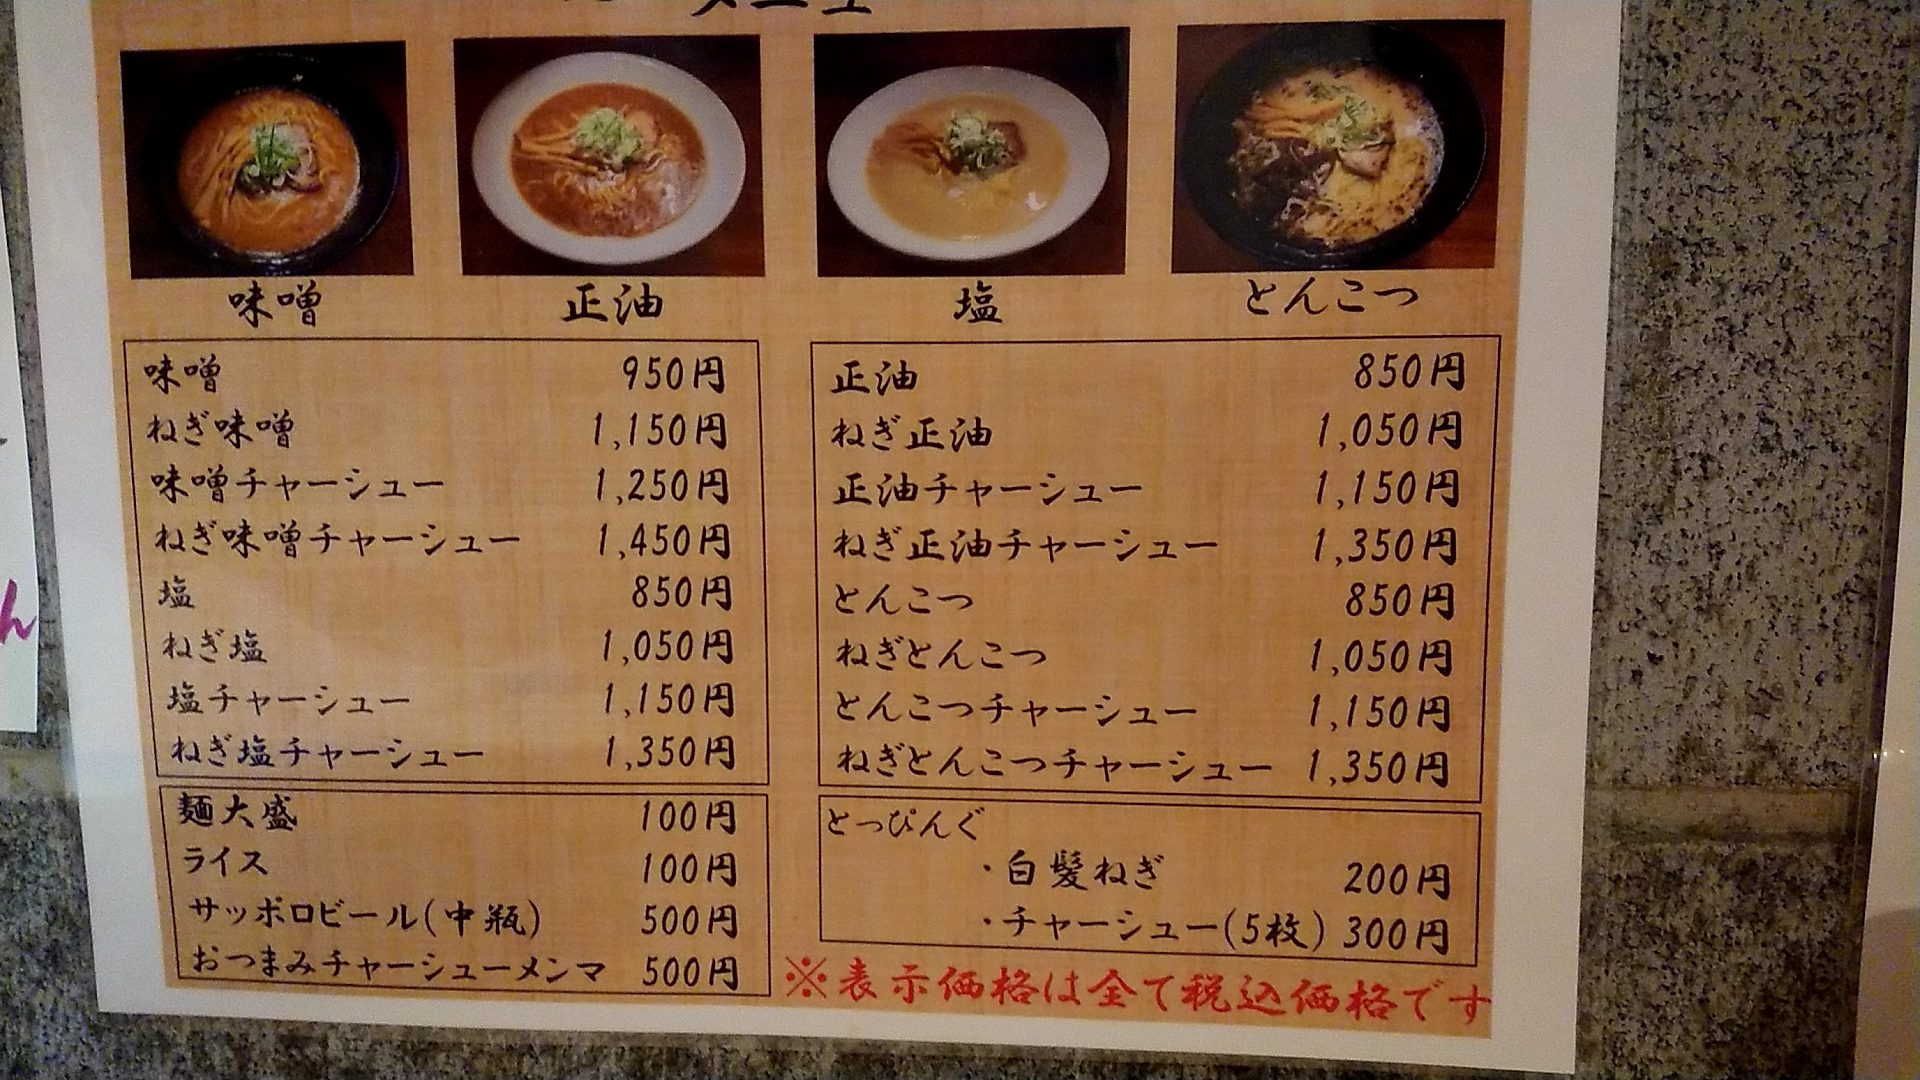 メニュー
味噌
正油
塩
とんこつ
味噌 950円
ねぎ味噌 1,150円
味噌チャーシュー 1,250円
ねぎ味噌チャーシュー 1,450円
塩 850円
ねぎ塩 1,050円
塩チャーシュー 1,150円
ねぎ塩チャーシュー 1,350円
正油 850円
ねぎ正油 1,050円
正油チャーシュー 1,150円
ねぎ正油チャーシュー 1,350円
とんこつ 850円
ねぎとんこつ 1,050円
とんこつチャーシュー 1,150円
ねぎとんこつチャーシュー 1,350円
麺大盛 100円
ライス 100円
サッポロビール(中瓶) 500円
おつまみチャーシューメンマ 500円
とっぴんぐ
・白髪ねぎ 200円
・チャーシュー(5枚) 300円
※表示価格は全て税込価格です
ん